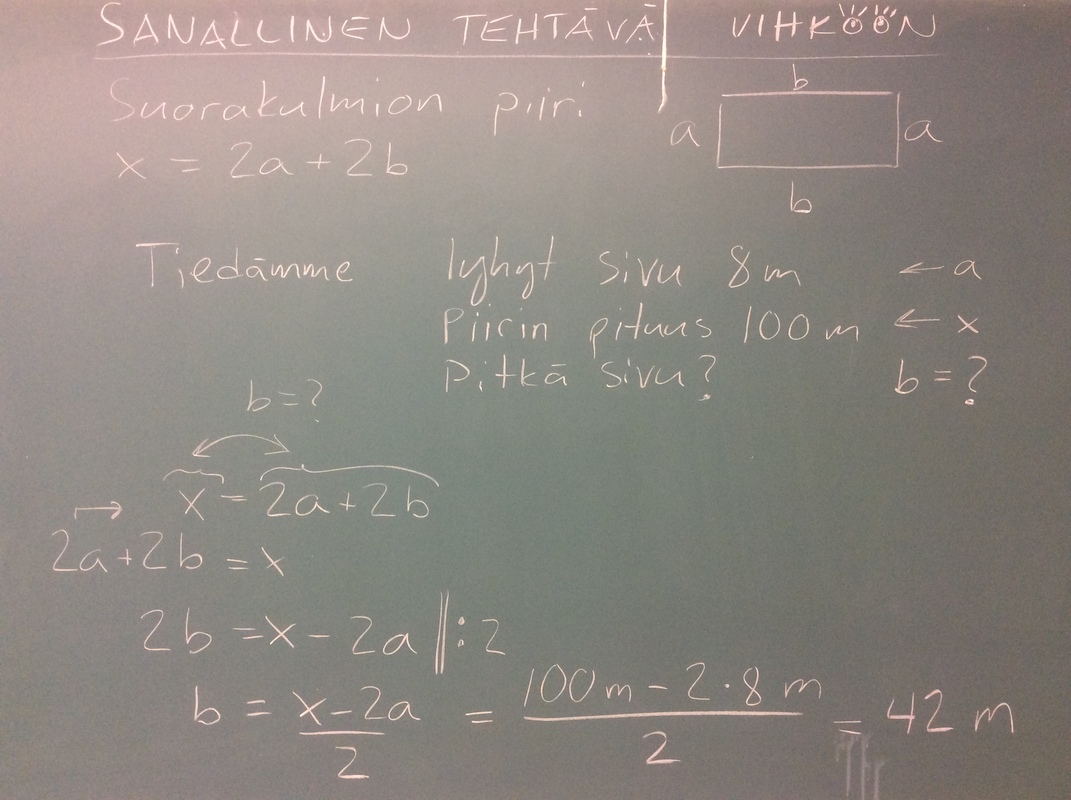 SANALLINEN TEHTÄVÄ VIHKÖÖN
Suorakulmion piiri
x = 2a + 2b
b
a
a
b
Tiedämme lyhyt sivu 8 m ← a
Piirin pituus 100 m ← x
Pitkä sivu? b = ?
b = ?
x = 2a + 2b
2a + 2b = x
2b = x - 2a ‖ : 2
b = (x - 2a)/2 = (100 m - 2 · 8 m)/2 = 42 m